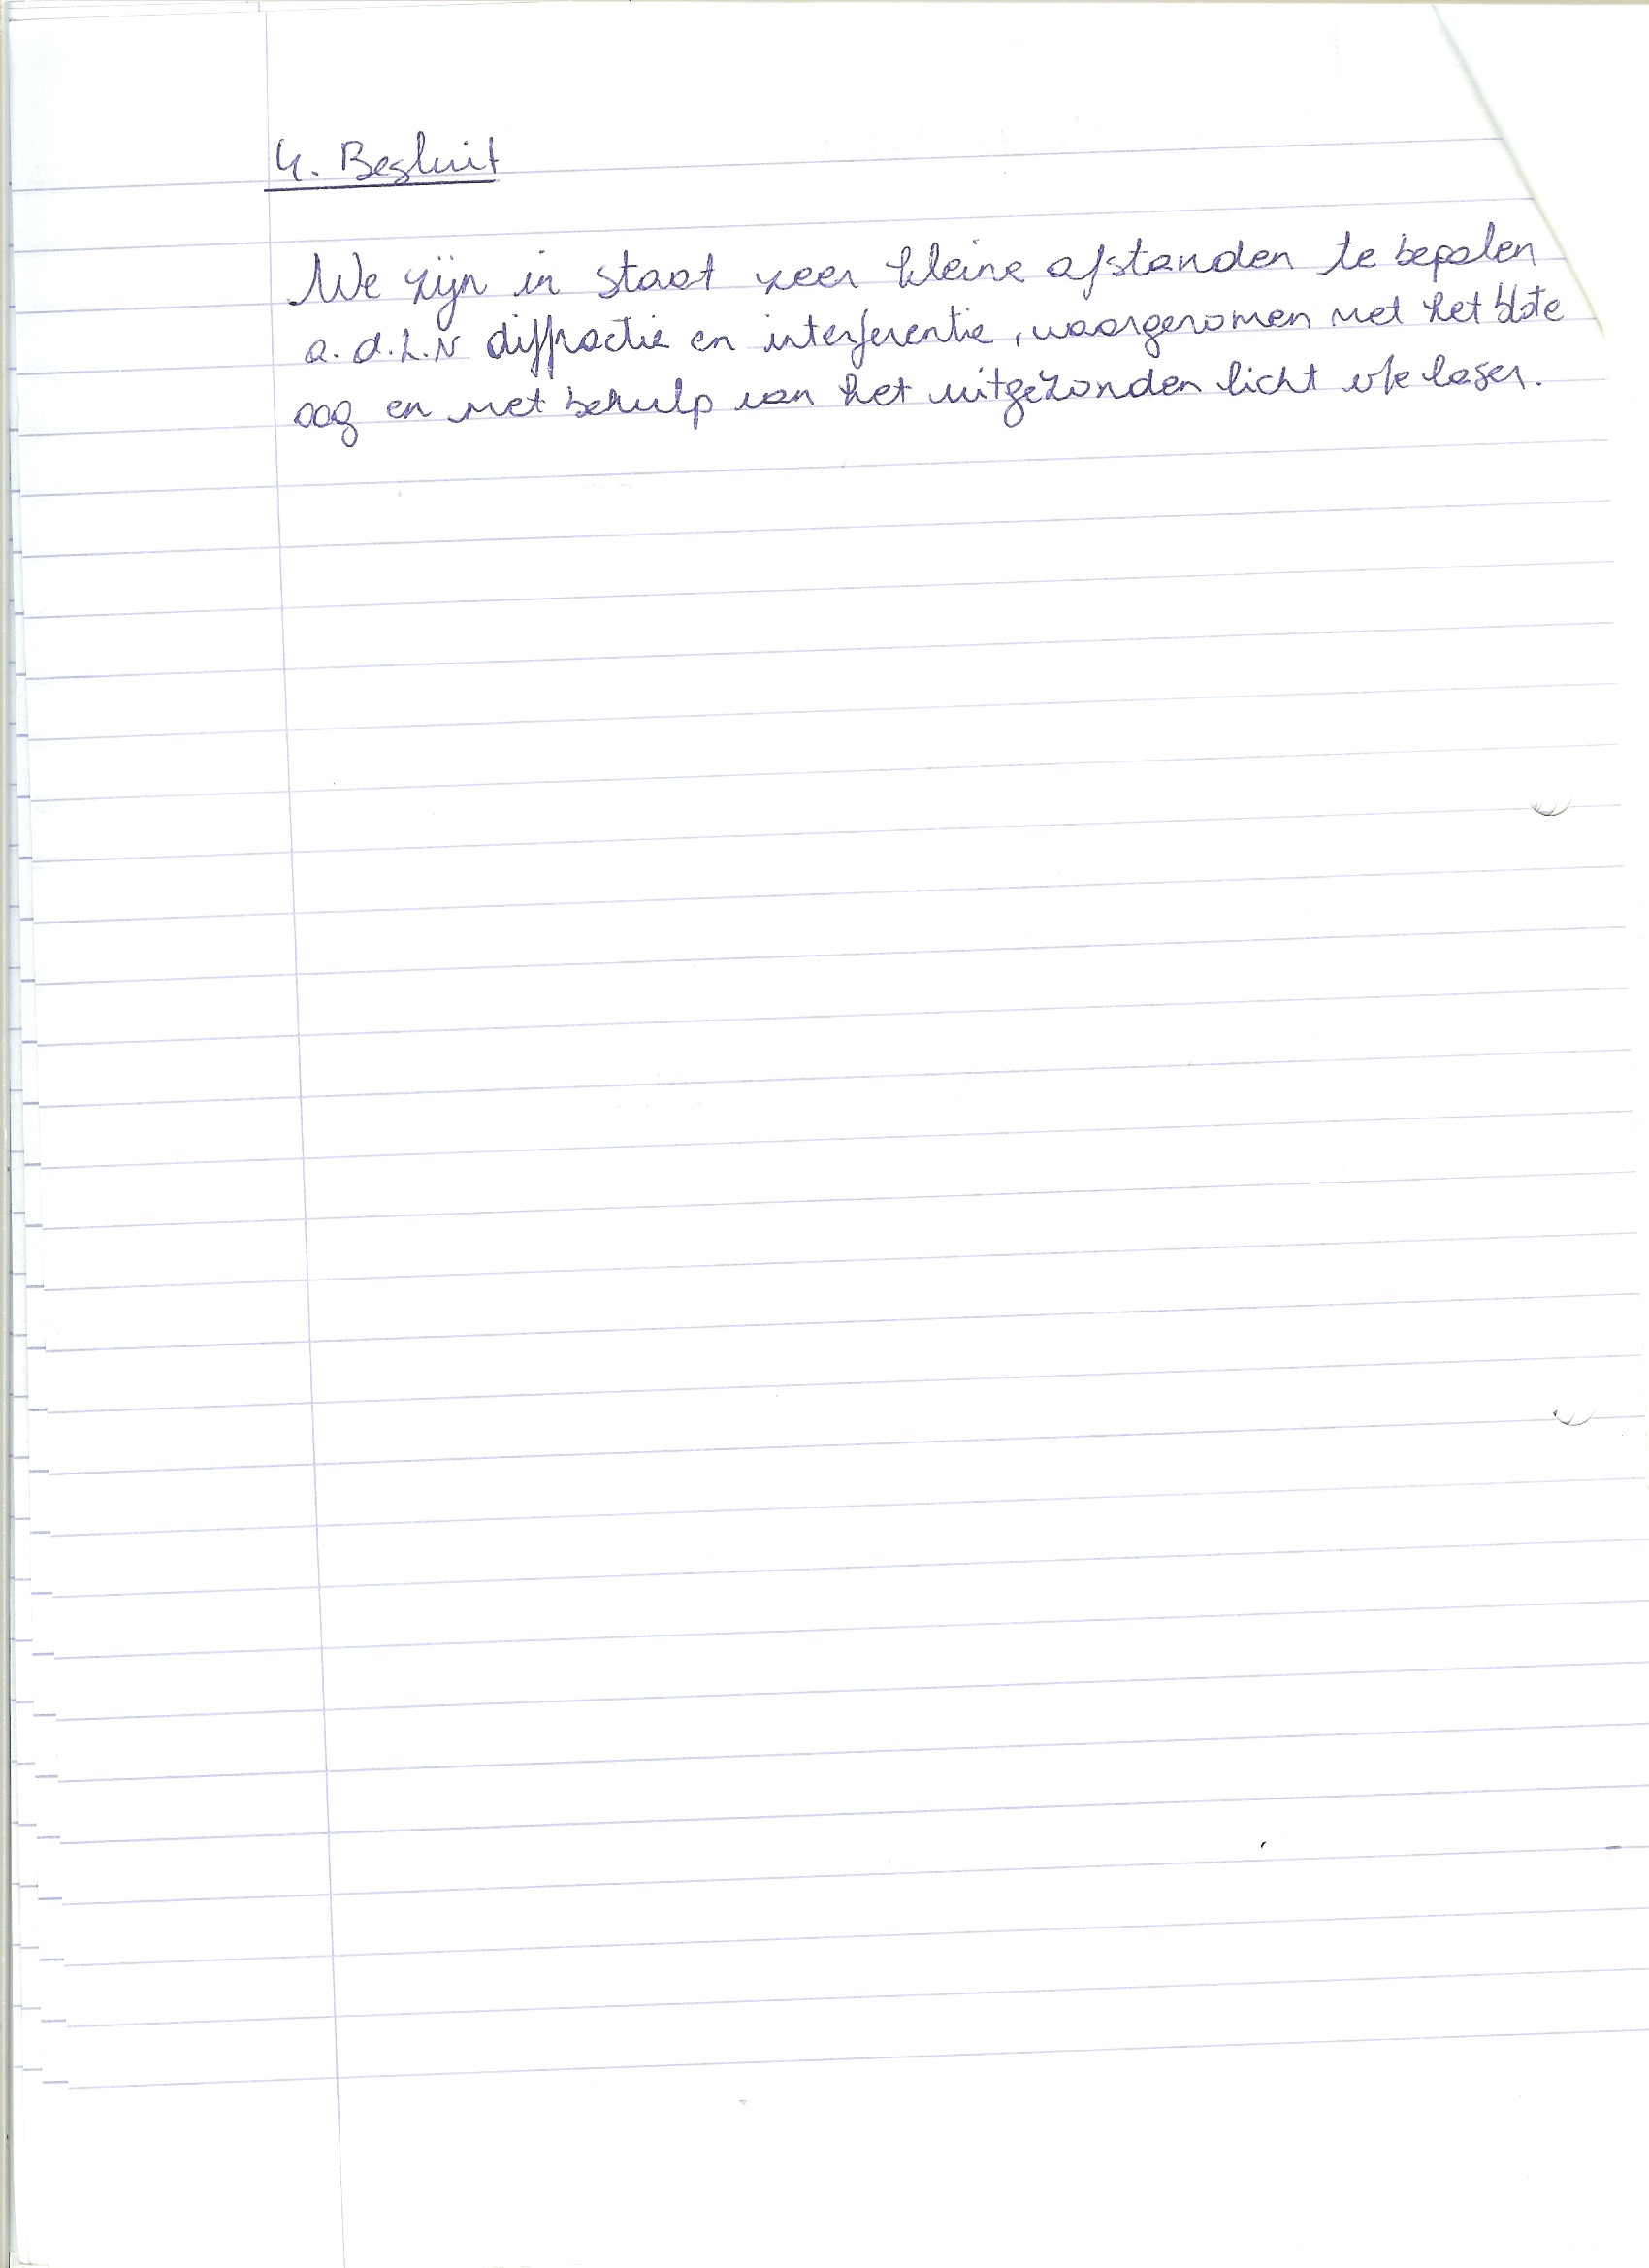 4. Besluit
We zijn in staat zeer kleine afstanden te bepalen
a.d.h.v diffractie en interferentie, waargenomen met het blote
oog en met behulp van het uitgezonden licht v/e laser.